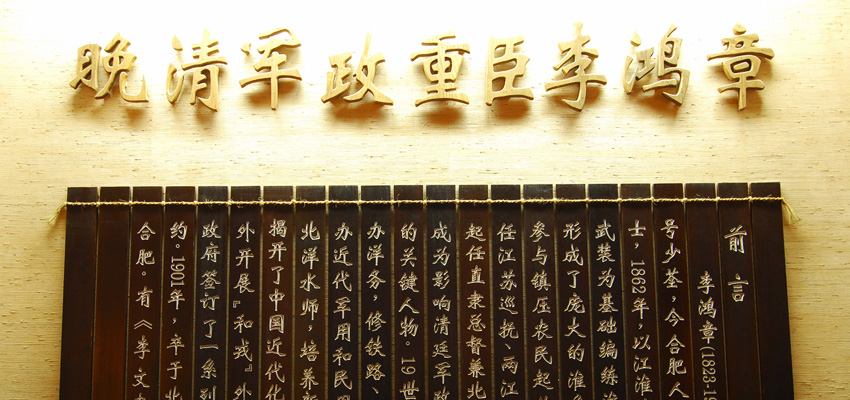 晚清军政重臣李鸿章
前言
李鸿章(1823-19
号少荃，今合肥人
士，1862年，以江淮
武装为基础编练
形成了庞大的淮
参与镇压农民起
任江苏巡抚、两江
起任直隶总督兼北
成为影响清廷军政
的关键人物。19世
办洋务，修铁路、
办近代军用和民
北洋水师，培养
揭开了中国近代化
外开展『和戎』外
政府签订了一系列
约。1901年，卒于北
合肥。有《李文